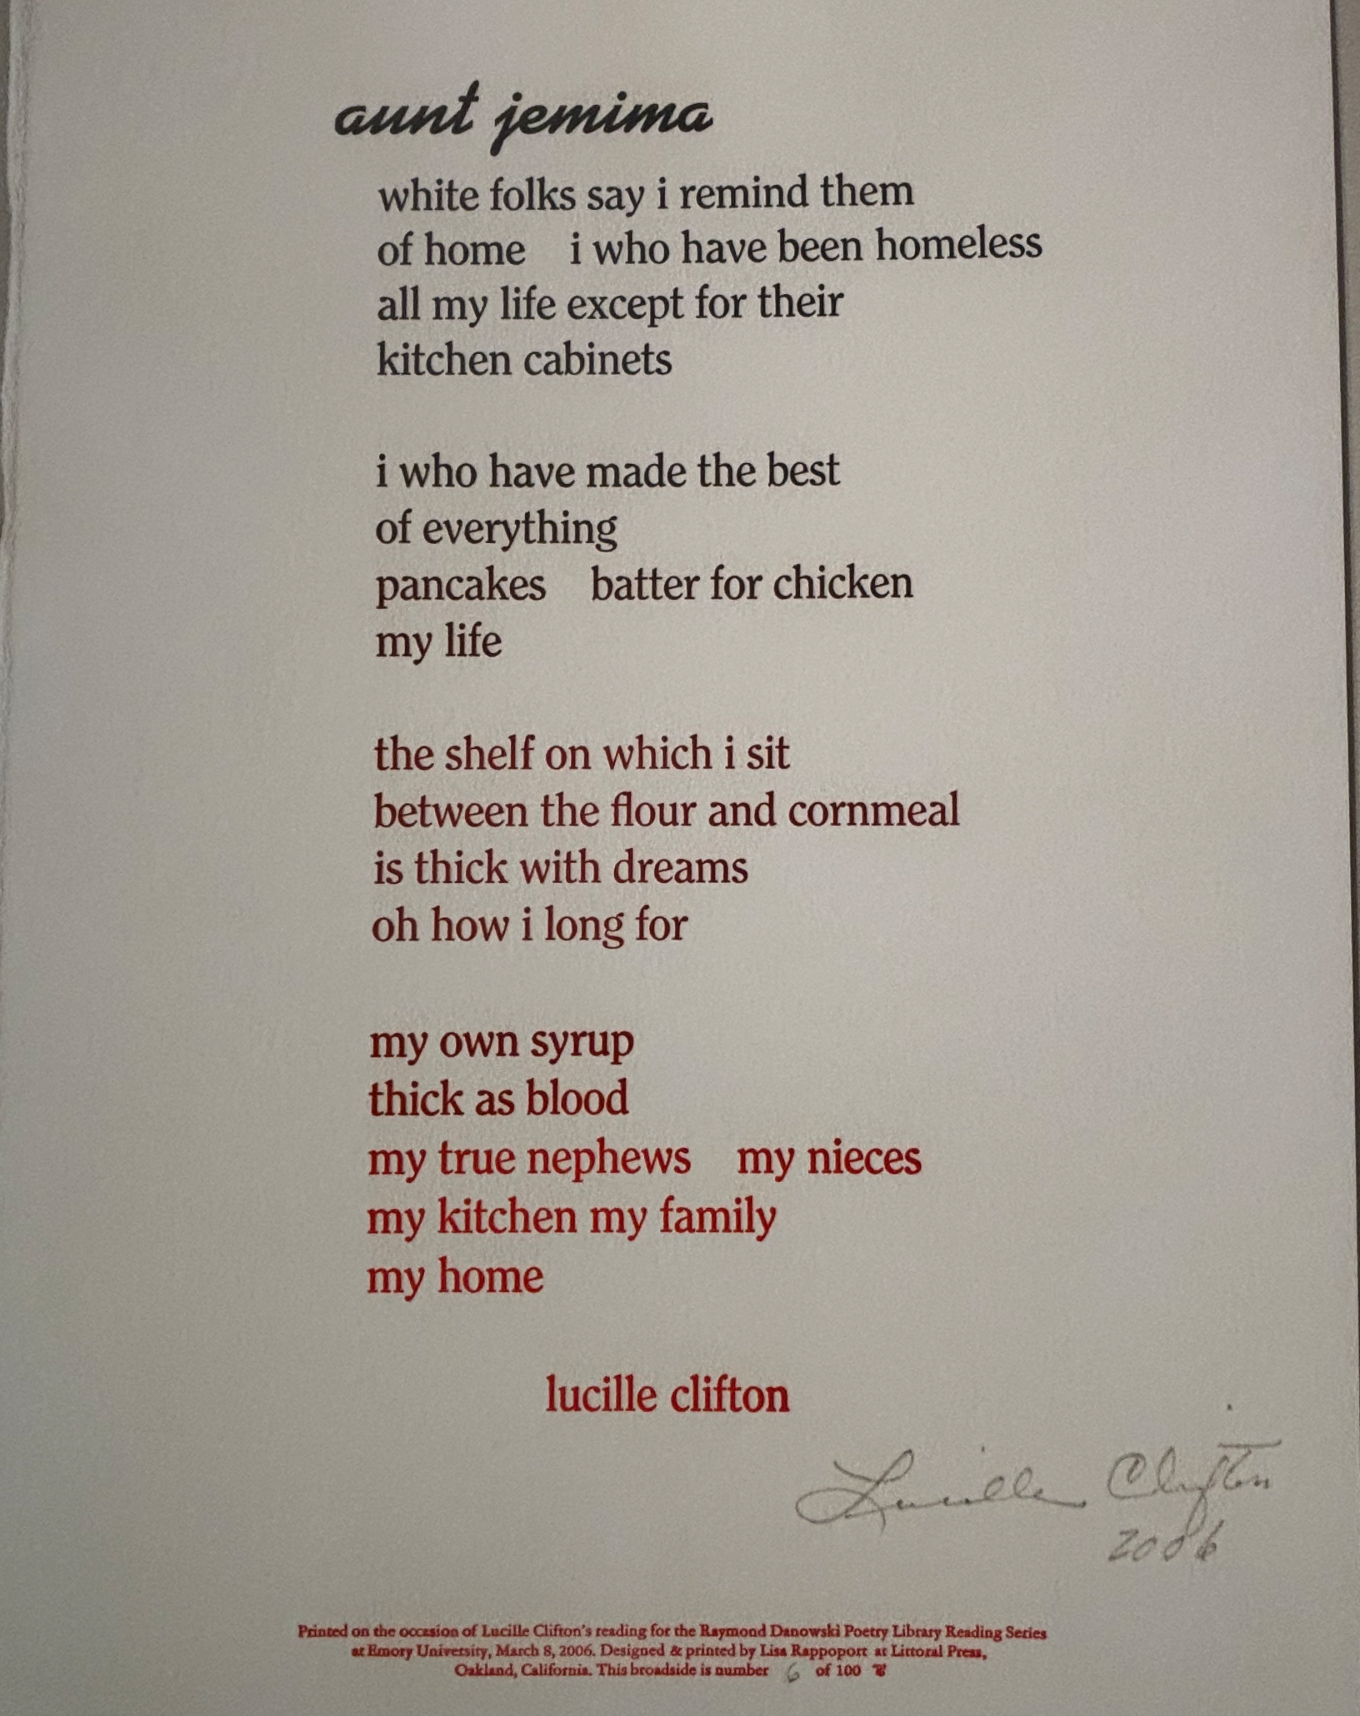 aunt jemima
white folks say i remind them
of home    i who have been homeless
all my life except for their
kitchen cabinets
i who have made the best
of everything
pancakes    batter for chicken
my life
the shelf on which i sit
between the flour and cornmeal
is thick with dreams
oh how i long for
my own syrup
thick as blood
my true nephews    my nieces
my kitchen my family
my home
lucille clifton
Lucille Clifton
2006
Printed on the occasion of Lucille Clifton's reading for the Raymond Danowski Poetry Library Reading Series
at Emory University, March 8, 2006. Designed & printed by Lisa Rappoport at Littoral Press,
Oakland, California. This broadside is number 6 of 100